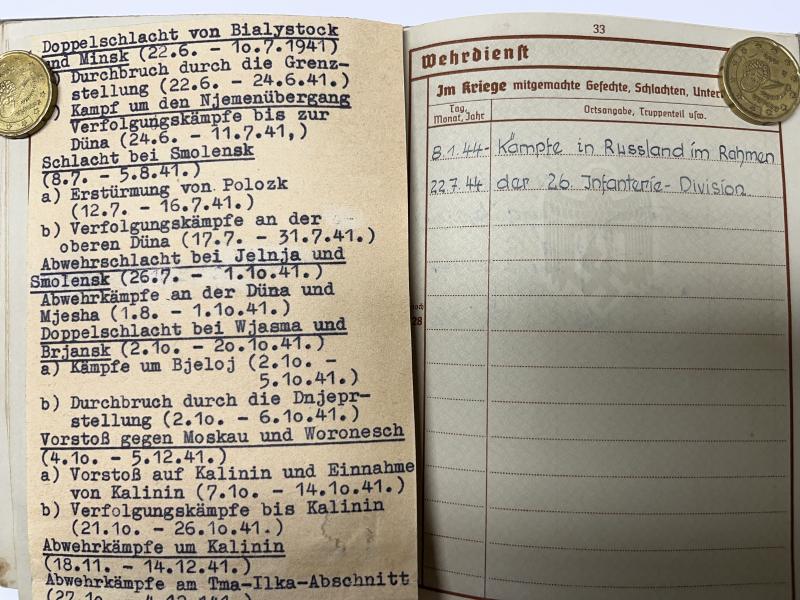 Doppelschlacht von Bialystock
und Minsk (22.6. - 1o.7.1941)
Durchbruch durch die Grenz-
stellung (22.6. - 24.6.41.)
) Kampf um den Njemenübergang
Verfolgungskämpfe bis zur
Düna (24.6. - 11.7.41,)
Schlacht bei Smolensk
(8.7. - 5.8.41.)
a) Erstürmung von Polozk
(12.7. - 16.7.41.)
b) Verfolgungskämpfe an der
oberen Düna (17.7. - 31.7.41.)
Abwehrschlacht bei Jelnja und
Smolensk (26.7. - 1.1o.41.)
Abwehrkämpfe an der Düna und
Mjesha (1.8. - 1.1o.41.)
Doppelschlacht bei Wjasma und
Brjansk (2.1o. - 2o.1o.41.)
a) Kämpfe um Bjeloj (2.1o. -
5.1o.41.)
b) Durchbruch durch die Dnjepr-
stellung (2.1o. - 6.1o.41.)
Vorstoß gegen Moskau und Woronesch
(4.1o. - 5.12.41.)
a) Vorstoß auf Kalinin und Einnahme
von Kalinin (7.1o. - 14.1o.41.)
b) Verfolgungskämpfe bis Kalinin
(21.1o. - 26.1o.41.)
Abwehrkämpfe um Kalinin
(18.11. - 14.12.41.)
Abwehrkämpfe am Tma-Ilka-Abschnitt
33
Wehrdienst
Im Kriege mitgemachte Gefechte, Schlachten,
Tag,
Monat, Jahr
Ortsangabe, Truppenteil usw.
8.1.44- Kämpfe in Russland im Rahmen
22.7.44 der 26. Infanterie-Division
28